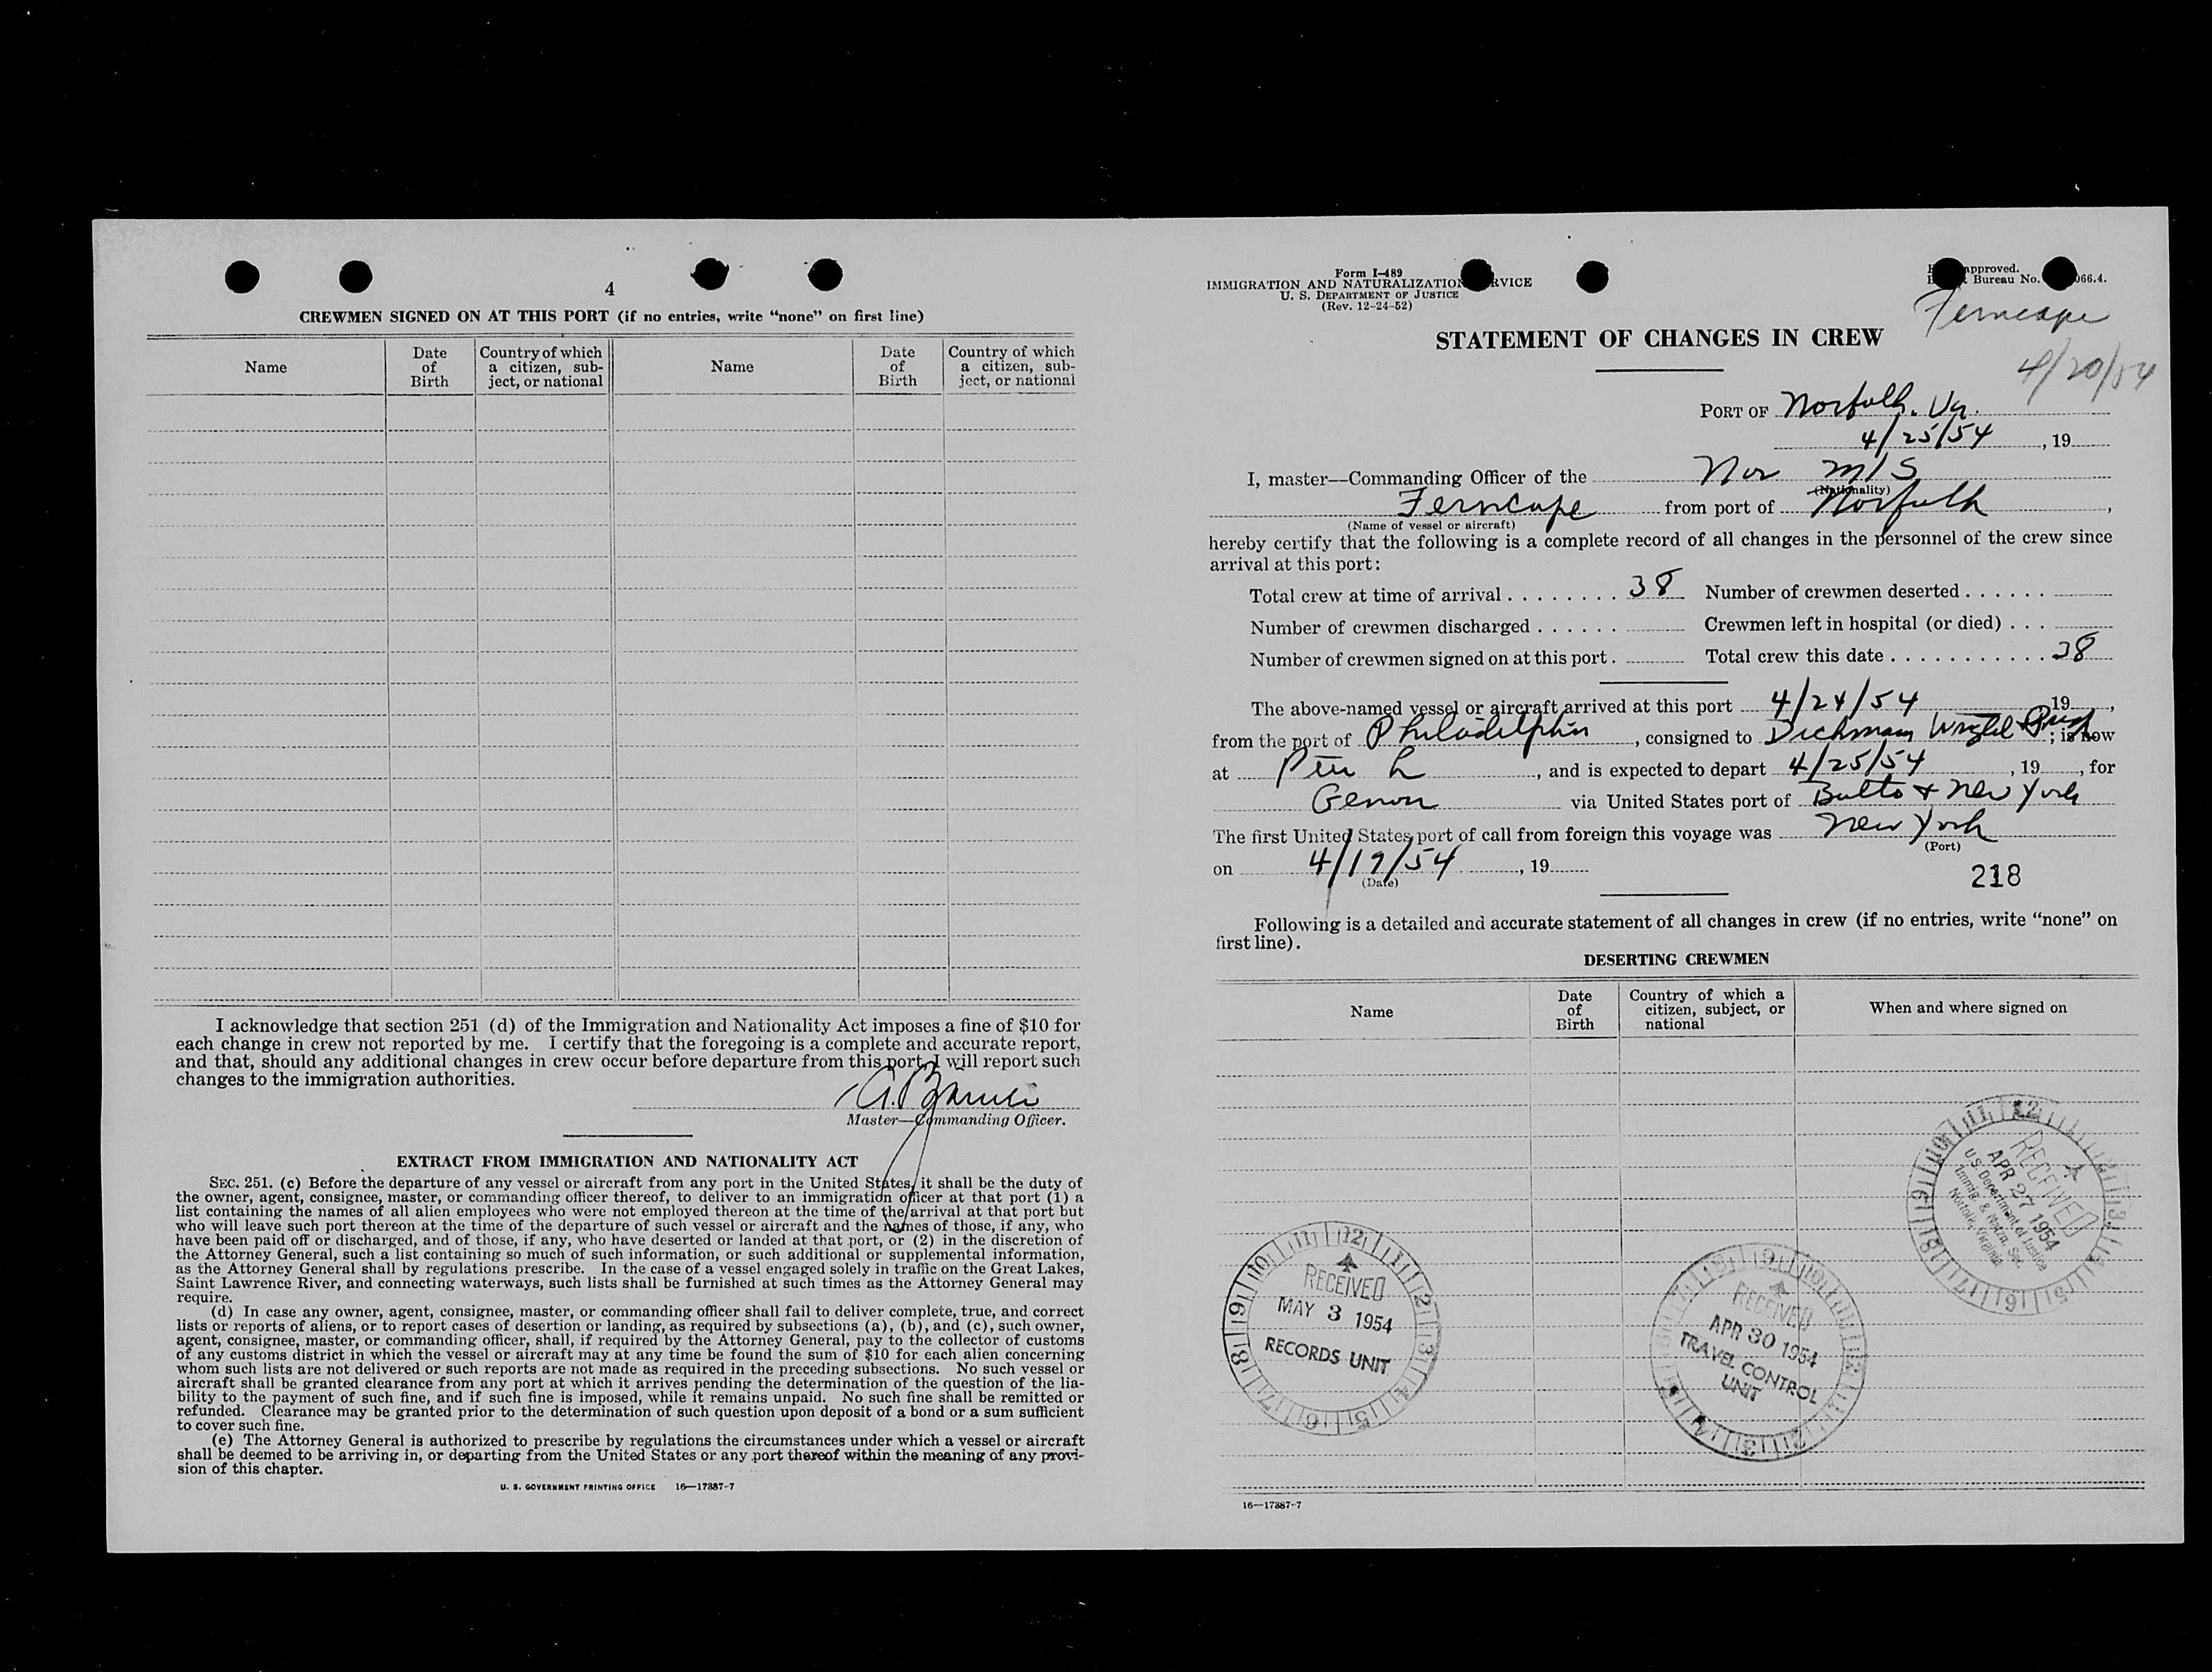 4
CREWMEN SIGNED ON AT THIS PORT (if no entries, write “none” on first line)
Name
Date of Birth
Country of which a citizen, subject, or national
Name
Date of Birth
Country of which a citizen, subject, or national
I acknowledge that section 251 (d) of the Immigration and Nationality Act imposes a fine of $10 for
each change in crew not reported by me. I certify that the foregoing is a complete and accurate report,
and that, should any additional changes in crew occur before departure from this port, I will report such
changes to the immigration authorities.
Master—Commanding Officer.
EXTRACT FROM IMMIGRATION AND NATIONALITY ACT
SEC. 251. (c) Before the departure of any vessel or aircraft from any port in the United States, it shall be the duty of
the owner, agent, consignee, master, or commanding officer thereof, to deliver to an immigration officer at that port (1) a
list containing the names of all alien employees who were not employed thereon at the time of the arrival at that port but
who will leave such port thereon at the time of the departure of such vessel or aircraft and the names of those, if any, who
have been paid off or discharged, and of those, if any, who have deserted or landed at that port, or (2) in the discretion of
the Attorney General, such a list containing so much of such information, or such additional or supplemental information,
as the Attorney General shall by regulations prescribe. In the case of a vessel engaged solely in traffic on the Great Lakes,
Saint Lawrence River, and connecting waterways, such lists shall be furnished at such times as the Attorney General may
require.
(d) In case any owner, agent, consignee, master, or commanding officer shall fail to deliver complete, true, and correct
lists or reports of aliens, or to report cases of desertion or landing, as required by subsections (a), (b), and (c), such owner,
agent, consignee, master, or commanding officer, shall, if required by the Attorney General, pay to the collector of customs
of any customs district in which the vessel or aircraft may at any time be found the sum of $10 for each alien concerning
whom such lists are not delivered or such reports are not made as required in the preceding subsections. No such vessel or
aircraft shall be granted clearance from any port at which it arrives pending the determination of the question of the lia-
bility to the payment of such fine, and if such fine is imposed, while it remains unpaid. No such fine shall be remitted or
refunded. Clearance may be granted prior to the determination of such question upon deposit of a bond or a sum sufficient
to cover such fine.
(e) The Attorney General is authorized to prescribe by regulations the circumstances under which a vessel or aircraft
shall be deemed to be arriving in, or departing from the United States or any port thereof within the meaning of any provi-
sion of this chapter.
U. S. GOVERNMENT PRINTING OFFICE 16—17387-7
Form I-489
IMMIGRATION AND NATURALIZATION SERVICE
U. S. DEPARTMENT OF JUSTICE
(Rev. 12-24-52)
approved.
Bureau No. 066.4.
Ferncape
4/20/54
STATEMENT OF CHANGES IN CREW
PORT OF Norfolk. Va.
4/25/54, 19
I, master—Commanding Officer of the Nor M/S
(Nationality)
Ferncape from port of Norfolk,
(Name of vessel or aircraft)
hereby certify that the following is a complete record of all changes in the personnel of the crew since
arrival at this port:
Total crew at time of arrival 38 Number of crewmen deserted
Number of crewmen discharged Crewmen left in hospital (or died)
Number of crewmen signed on at this port. Total crew this date 38
The above-named vessel or aircraft arrived at this port 4/24/54 19,
from the port of Philadelphia, consigned to Dichmann Wright & Pugh; is now
at Pier L, and is expected to depart 4/25/54, 19, for
Genoa via United States port of Balto & New York
The first United States port of call from foreign this voyage was New York
(Port)
on 4/19/54, 19
(Date)
218
Following is a detailed and accurate statement of all changes in crew (if no entries, write “none” on
first line).
DESERTING CREWMEN
Name
Date of Birth
Country of which a citizen, subject, or national
When and where signed on
RECEIVED
APR 27 1954
U.S. Department of Justice
Immig. & Natzn. Ser.
Norfolk, Virginia
RECEIVED
MAY 3 1954
RECORDS UNIT
RECEIVED
APR 30 1954
TRAVEL CONTROL
UNIT
16—17387-7